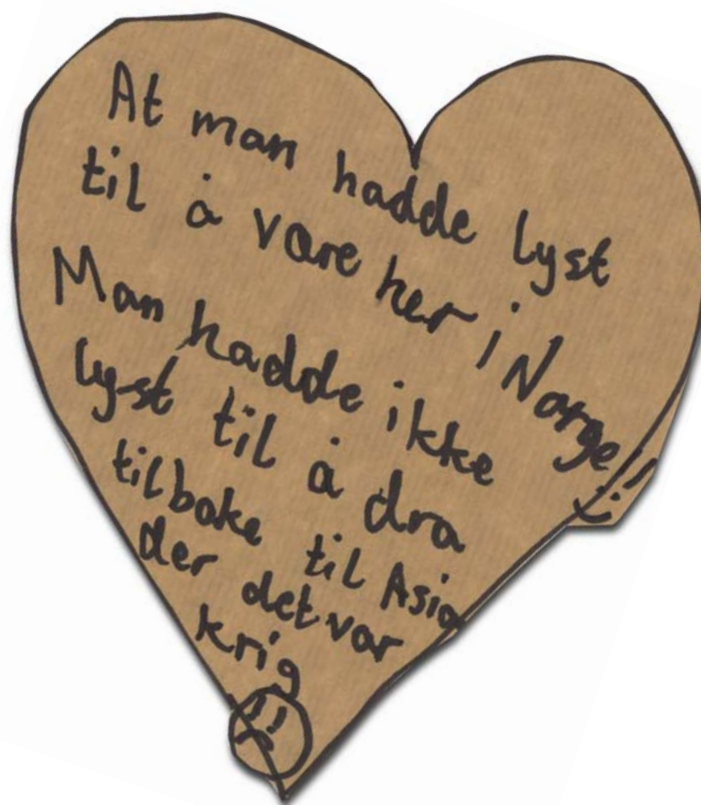 At man hadde lyst
til å vare her i Norge!!
Man hadde ikke
lyst til å dra
tilbake til Asia
der det var
krig